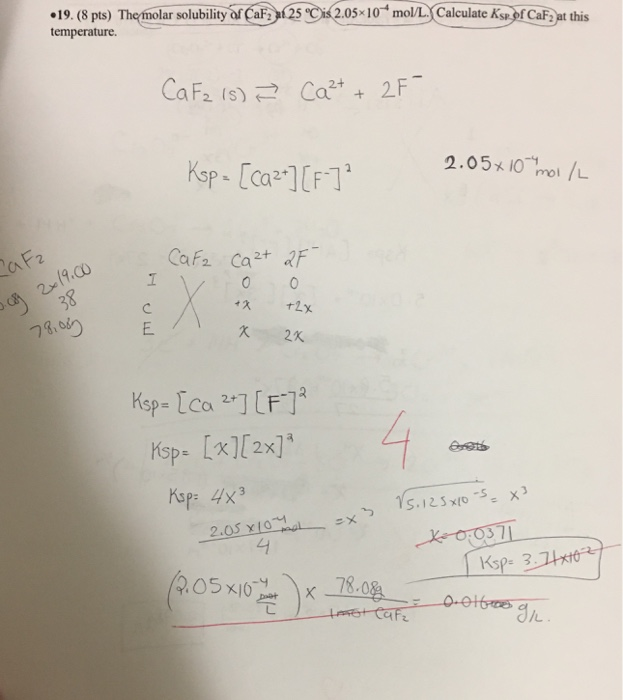 •19. (8 pts) The molar solubility of CaF₂ at 25 °C is 2.05×10⁻⁴ mol/L. Calculate Ksp of CaF₂ at this
temperature.
CaF₂ (s) ⇄ Ca²⁺ + 2F⁻
Ksp = [Ca²⁺][F⁻]²
2.05×10⁻⁴ mol/L
CaF₂
2×19.00
38
78.08g
CaF₂ Ca²⁺ 2F⁻
I 0 0
C +x +2x
E x 2x
Ksp = [Ca²⁺][F⁻]²
Ksp = [x][2x]²
4
Ksp = 4x³
2.05×10⁻⁴ mol
4
= x³
√5.125×10⁻⁵ = x³
x = 0.0371
Ksp = 3.71×10⁻²
(2.05×10⁻⁴ mol/L) × 78.08g / 1mol CaF₂ = 0.016 g/L.